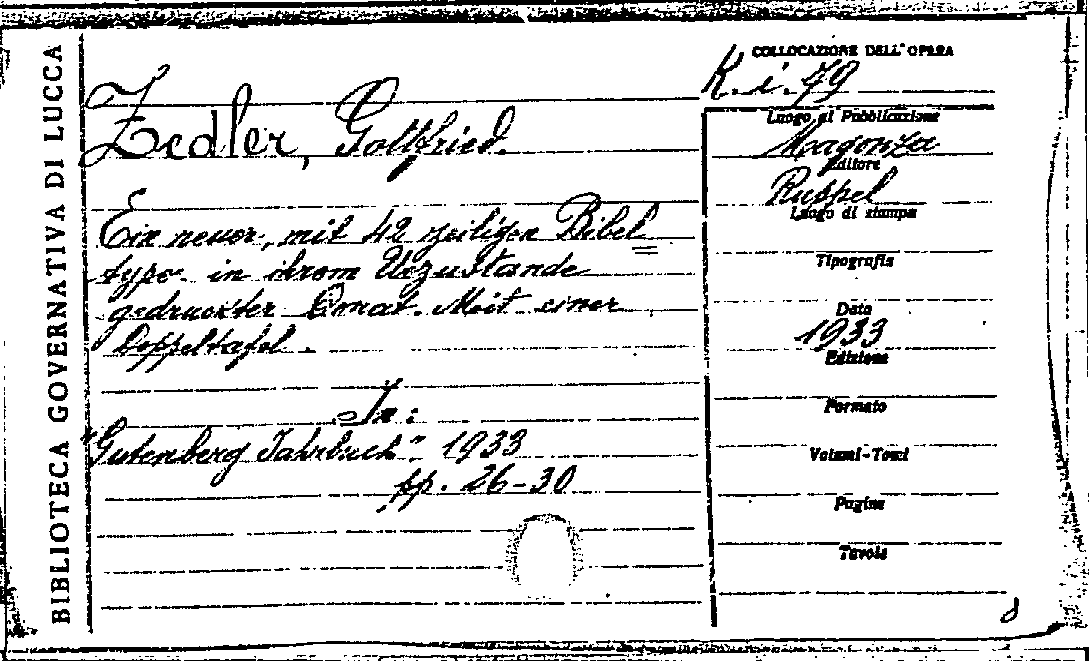 BIBLIOTECA GOVERNATIVA DI LUCCA
COLLOCAZIONE DELL'OPERA
K. i. 79
Zedler, Gottfried.
Ein neuer, mit 42 zeiligen Bibel
type in ihrem Urzustande
gedruckter Donat. Meit einer
Doppeltafel.
In:
"Gutenberg Jahrbuch" 1933
pp. 26-30
Luogo di Pubblicazione
Magonza
Editore
Ruppel
Luogo di stampa
Tipografia
Data
1933
Edizione
Formato
Volumi-Tomi
Pagine
Tavole